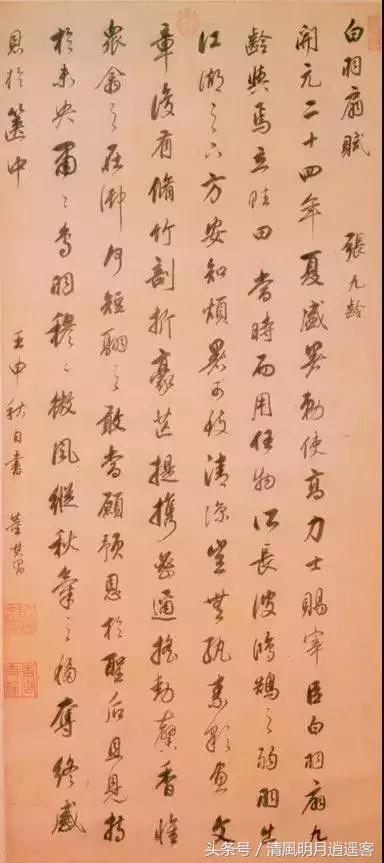 白羽扇賦 張九齡
開元二十四年夏盛暑勅使高力士賜宰臣白羽扇九
齡與焉立賦曰當時而用任物所長彼鴻鵠之弱羽出
江湖之下方安知煩暑可致清涼豈無紈素彩畫文
章復有脩竹剖析毫芒提攜密邇搖動馨香惟
衆禽之在御何短翮之敢當顧預恩於聖后且見持
於未央肅〻鳥羽穆〻微風縱秋氣之移奪終感
恩於篋中 壬申秋日書 董其昌
头条号 / 清風明月逍遥客